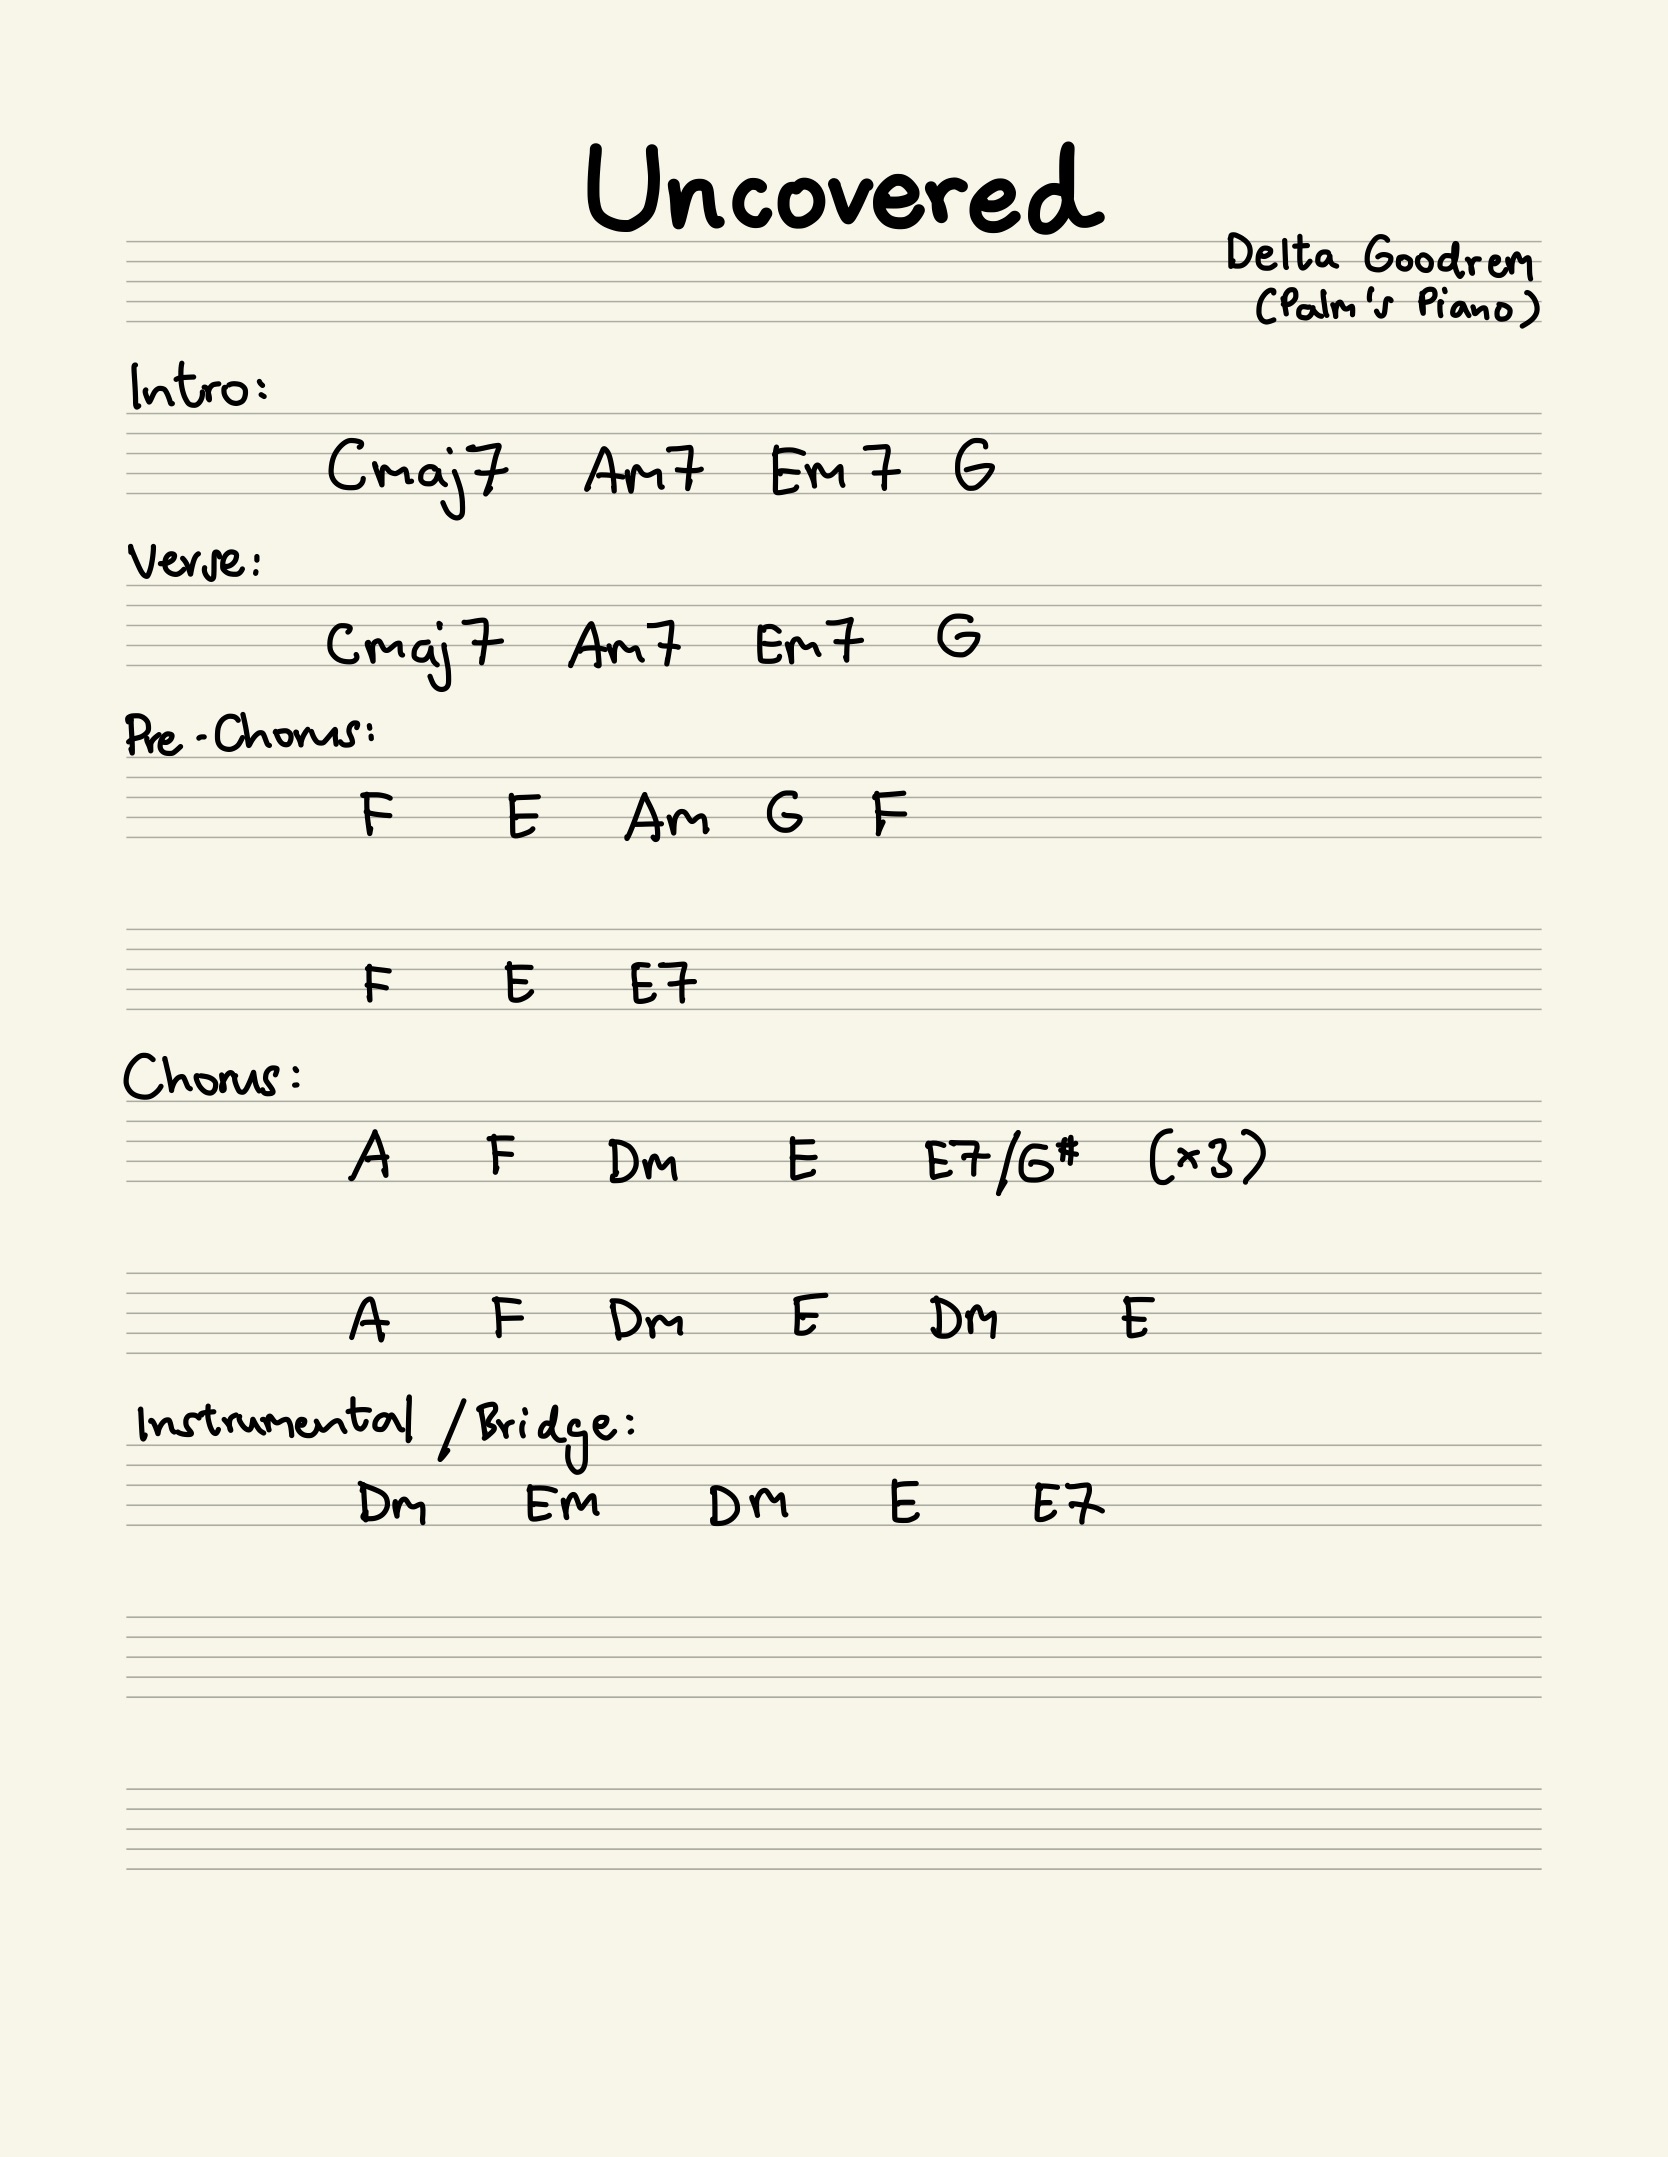 Uncovered
Delta Goodrem
(Palm's Piano)
Intro:
Cmaj7 Am7 Em7 G
Verse:
Cmaj7 Am7 Em7 G
Pre-Chorus:
F E Am G F
F E E7
Chorus:
A F Dm E E7/G# (x3)
A F Dm E Dm E
Instrumental/Bridge:
Dm Em Dm E E7